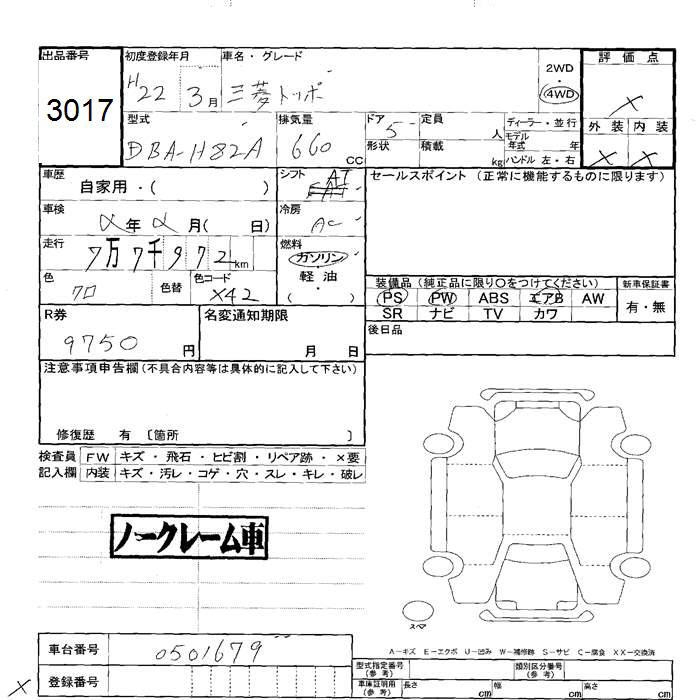 出品番号 初度登録年月 車名・グレード 評価点
3017 H22 3月 三菱トッポ 2WD・4WD ×
型式 排気量 ドア 定員 ディーラー・並行 外装 内装
DBA-H82A 660 CC 5 人 モデル年式 年式
形状 積載 kg ハンドル 左・右 × ×
車歴 シフト AT セールスポイント (正常に機能するものに限ります)
自家用・( )
車検 冷房
年 月( 日) AC
走行 燃料
7万7千972km ガソリン・軽油
色 色替 色コード ( )
クロ X42
装備品(純正品に限り○をつけてください) 新車保証書
PS PW ABS エアB AW 有・無
SR ナビ TV カワ
R券 名変通知期限 後日品
9750円 月 日
注意事項申告欄(不具合内容等は具体的に記入して下さい)
修復歴 有 〔箇所 〕
検査員 FW キズ・飛石・ヒビ割・リペア跡・×要
記入欄 内装 キズ・汚レ・コゲ・穴・スレ・キレ・破レ
ノークレーム車
スペア
A－キズ E－エクボ U－凹み W－補修跡 S－サビ C－腐食 XX－交換済
車台番号 0501679
型式指定番号(参考) 類別区分番号(参考)
× 登録番号
車庫証明用(参考) 長さ cm 幅 cm 高さ cm